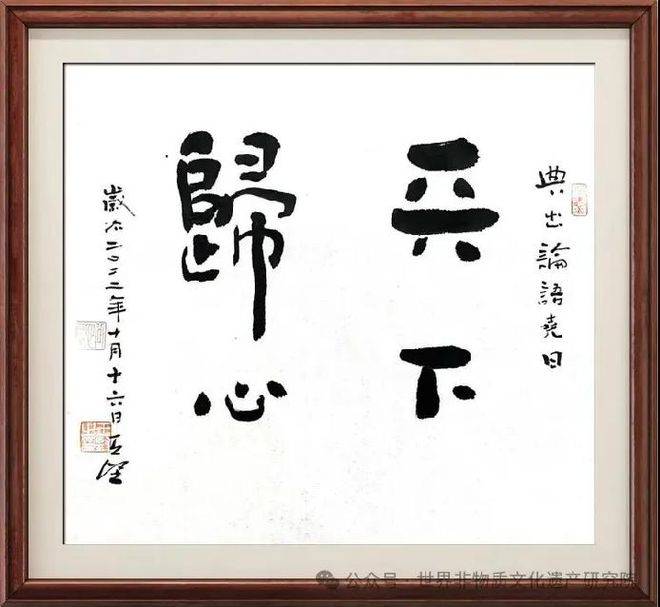 典出論語堯曰
天下
歸心
歲次二〇二三年十月十六日
公众号 · 世界非物质文化遗产研究院